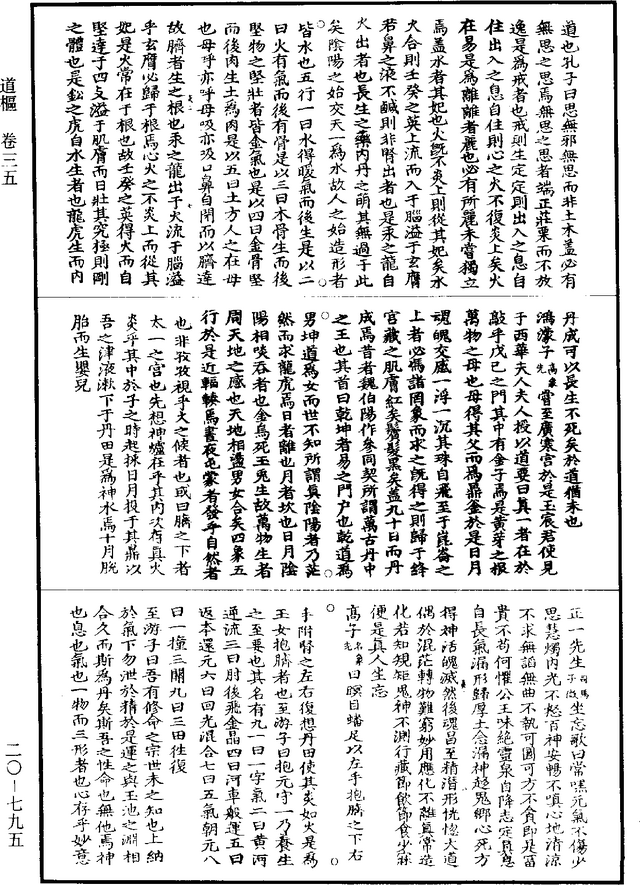 道樞　卷三五
二〇—七九五
道也孔子曰思無邪無思而非土木蓋必有
無思之思焉無思之思者端正莊栗而不放
逸是為戒者也戒則生定定則出入之息自
住出入之息自住則心之火不復炎上矣火
在易是為離離者麗也必有所麗未嘗獨立
焉蓋水者其妃也火旣不炎上則從其妃矣水
火合則壬癸之英上流而入于腦溢于玄膺
若鼻之液不鹹則非腎出者也是汞之龍自
火出者也長生之藥內丹之萌其無過于此
矣陰陽之始交天一為水故人之始造形者
皆水也五行一曰水得暖氣而後生是以二
曰火有氣而後有骨是以三曰木骨生而後
堅物之堅壯者皆金氣也是以四曰金骨堅
而後肉生土為肉是以五曰土方人之在母
也母呼亦呼母吸亦吸口鼻自閉而以臍達
故臍者生之根也汞之龍出于火流于腦溢
乎玄膺必歸于根焉心火之不炎上而從其
妃是火常在于根也故壬癸之英得火而自
堅達于四支溢于肌膚而日壯其究極則剛
之體也是鉛之虎自水生者也龍虎生而內
丹成可以長生不死矣於道猶未也
鴻濛子嘗至廣寒宮於是玉宸君使見
于西華夫人夫人授以道要曰真一者在於
敲乎戊巳之門其中有金子焉是黃芽之根
萬物之母也母得其父而為鼎金於是日月
魂魄交感一浮一沉其珠自飛至于崑崙之
上者必為諸罔象而求之旣得之則歸于絳
宮藏之肌膚紅矣鬢髮黑矣蓋九十日而丹
成焉昔者魏伯陽作參同契所謂萬古丹中
之王也其首曰乾坤者易之門戶也乾道為
男坤道為女而世不知所謂真陰陽者乃茫
然而求龍虎焉日者離也月者坎也日月陰
陽相啖吞者也金烏死玉兔生故萬物生者
周天地之感也天地相盪男女合矣四象五
行於是近輻輳焉晝夜屯蒙者發乎自然者
也非孜孜視乎爻之候者也或曰臍之下者
太一之宮也先想神爐在乎其內次有真火
炎乎其中於子之時起採日月投于其鼎以
吾之津液漱下于丹田是為神水焉十月脫
胎而生嬰兒
正一先生坐忘歌曰常嘿元氣不傷少
思慧燭內光不怒百神安暢不嗔心地清涼
不求無諂無曲不執可圓可方不貪即是富
貴不苟何懼公王味絕靈泉自降志定真息
自長氣漏形歸厚土念漏神趨鬼鄉心死方
得神活魄滅然後魂昌至精潛形恍惚大道
偶於混茫轉物難窮妙用應化不離真常造
化若知規矩鬼神不測行藏節飲節食少寐
便是真人坐忘
高子曰瞑目蟠足以左手抱臍之下右
手附腎之左右復想丹田使其炎如火是為
玉女抱臍者也至游子曰抱元守一乃養生
之至要也其名有九一曰一字氣二曰黃河
逆流三曰肘後飛金晶四曰河車般運五曰
返本還元六曰回光混合七曰五氣朝元八
曰一撞三關九曰三田往復
至游子曰吾有修命之宗世未之知也上納
於氣下勿泄於精於是運之與玉池之淵相
合久而斯為丹矣斯吾之性命也無他焉神
也息也氣也一物而三形者也心存乎妙意